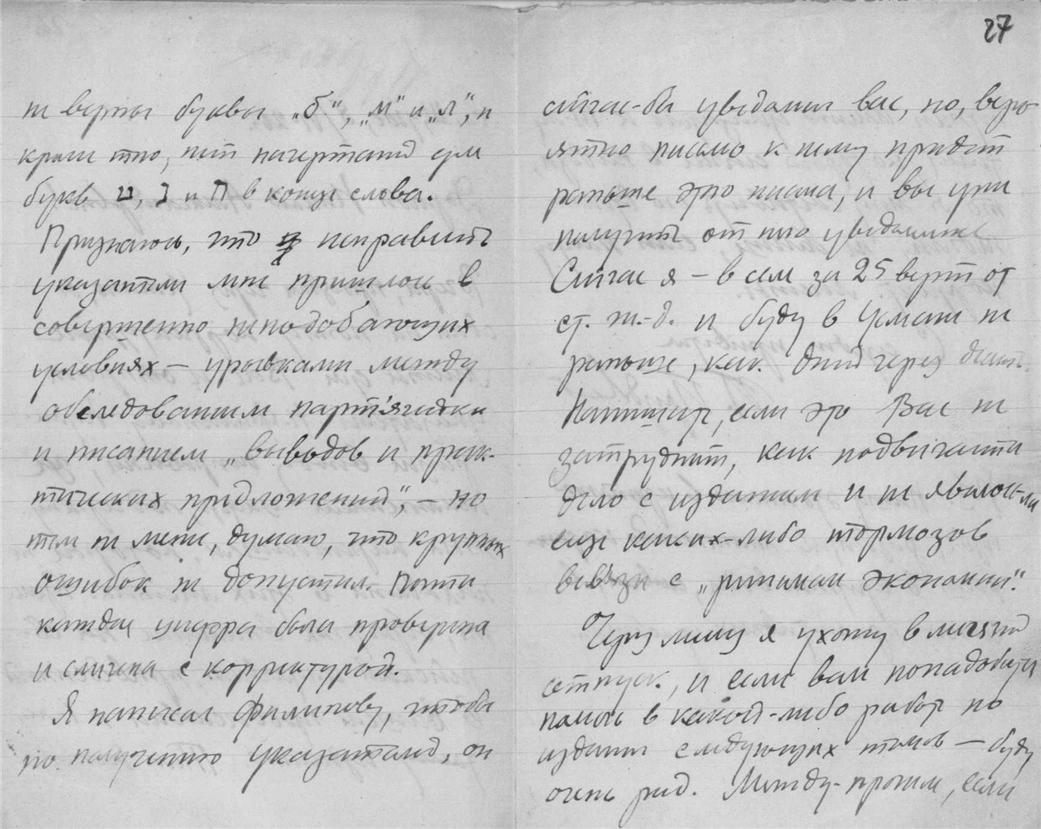 27
не верны буквы „б“, „м“ и „л“, и
кроме того, нет начертания для
букв ц, з и п в конце слова.
Признаюсь, что исправлять
указатели мне пришлось в
совершенно неподобающих
условиях – урывками между
обследованием парт'ячейки
и писанием „выводов и прак-
тических предложений“, – но
тем не менее, думаю, что крупных
ошибок не допустил. Почти
каждая цифра была проверена
и сличена с корректурой.
Я написал Филипову, чтобы
по получению указателей, он
сейчас-бы уведомил вас, но, веро-
ятно письмо к нему придет
раньше этого письма, и вы уже
получите от него уведомление
Сейчас я – в селе за 25 верст от
ст. ж.-д. и буду в Усмани не
раньше, как дней через
Напишите, если это Вас не
затруднит, как подвигается
дело с изданием и не явилось-ли
еще каких-либо тормозов
в связи с „режимом экономии“.
Через месяц я ухожу в летний
отпуск, и если вам понадобится
помочь в какой-либо работе по
издании следующих томов – буду
очень рад. Между-прочим, если